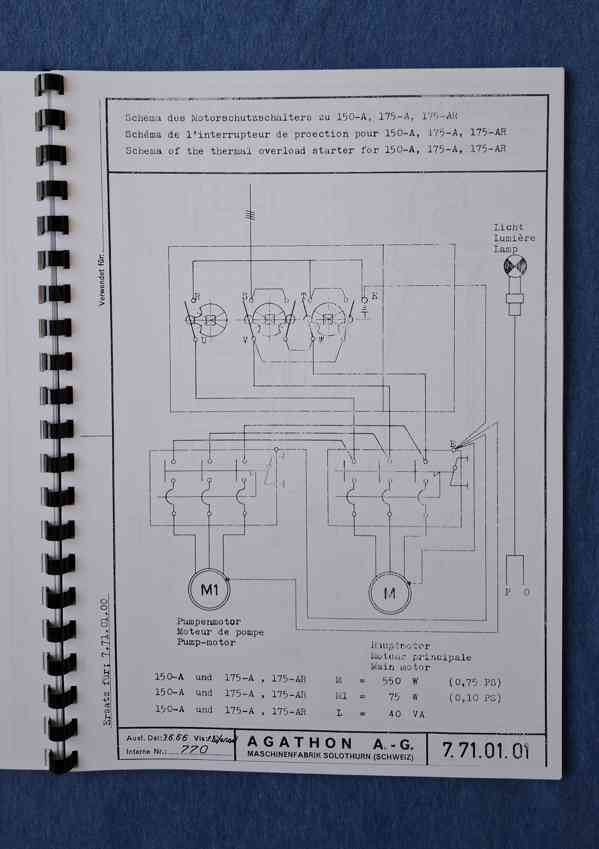 Schema des Motorschutzschalters zu 150-A, 175-A, 175-AR
Schéma de l'interrupteur de proection pour 150-A, 175-A, 175-AR
Schema of the thermal overload starter for 150-A, 175-A, 175-AR
Verwendet für:
Licht
Lumière
Lamp
R S T E
U V W
E
M1 M
P O
Pumpenmotor
Moteur de pompe
Pump-motor
Hauptmotor
Moteur principale
Main motor
150-A und 175-A , 175-AR M = 550 W (0,75 PS)
150-A und 175-A , 175-AR M1 = 75 W (0,10 PS)
150-A und 175-A , 175-AR L = 40 VA
Ersatz für: 7.71.01.00
Ausf. Dat: Vis:
Interne Nr.: 770
AGATHON A.-G.
MASCHINENFABRIK SOLOTHURN (SCHWEIZ)
7.71.01.01